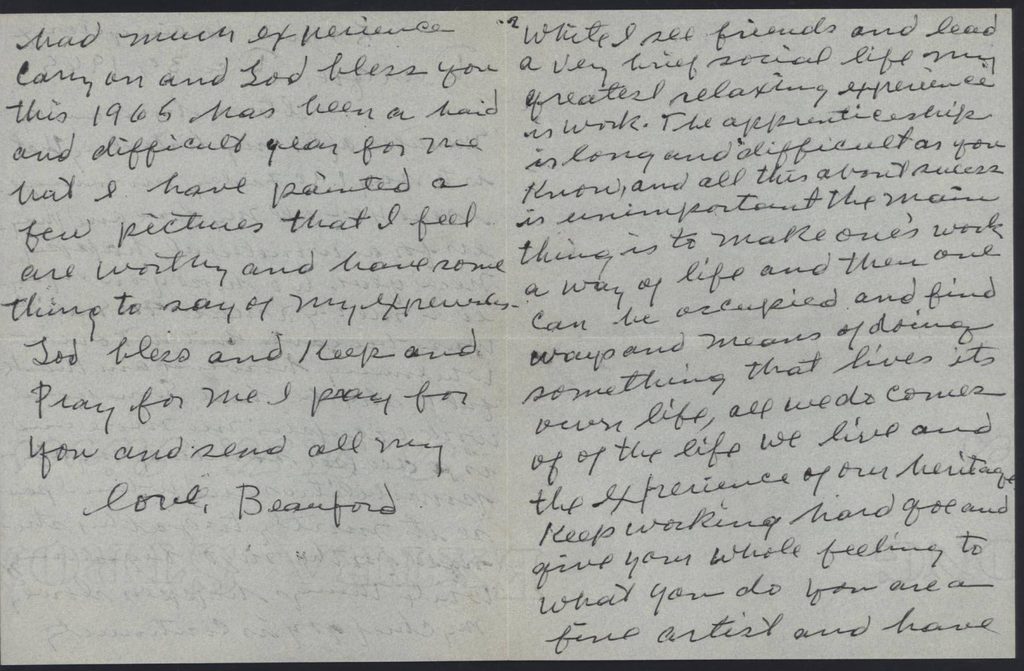 2
While I see friends and lead
a very brief social life my
greatest relaxing experience
is work. The apprenticeship
is long and difficult as you
know, and all this about sucess
is unimportant the main
thing is to make one's work
a way of life and then one
can be occupied and find
ways and means of doing
something that lives its
own life, all we do comes
of of the life we live and
the experience of our heritage
Keep working hard Joe and
give your whole feeling to
what you do you are a
fine artist and have
had much experience
Carry on and God bless you
this 1965 has been a hard
and difficult year for me
but I have painted a
few pictures that I feel
are worthy and have some
thing to say of my experiences
God bless and Keep and
Pray for me I pray for
you and send all my
love, Beauford